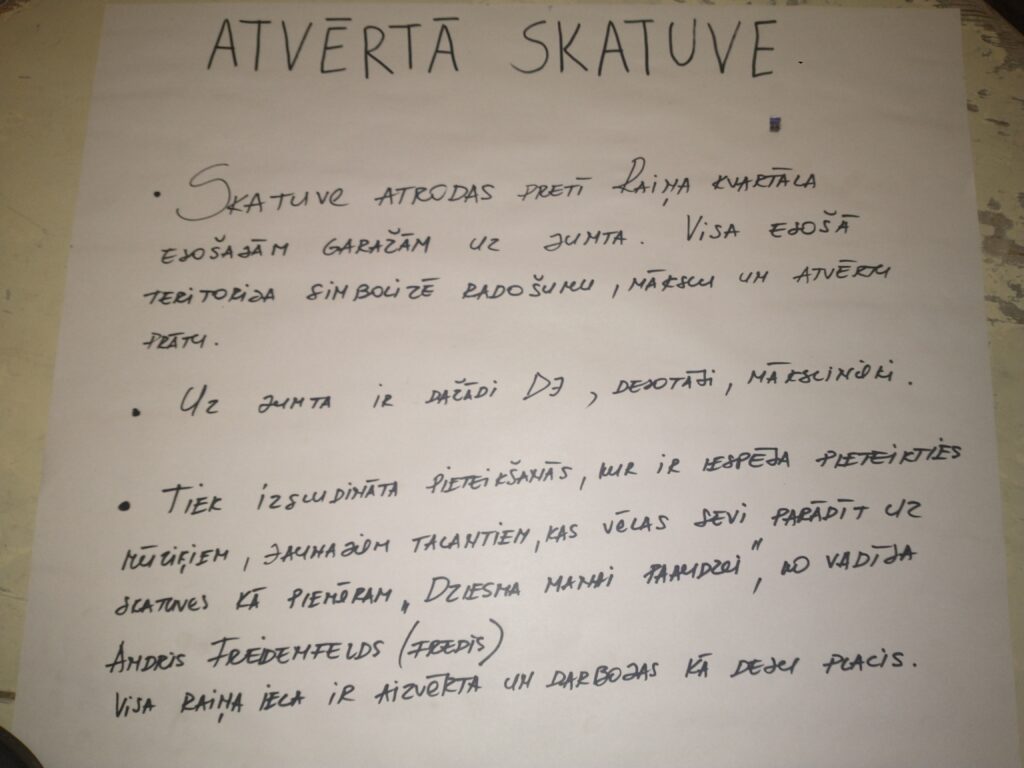 ATVĒRTĀ SKATUVE.
• SKATUVE ATRODAS PRETĪ RAIŅA KVARTĀLA
EJOŠAJĀM GARAŽĀM UZ JUMTA. VISA EJOŠĀ
TERITORIJA SIMBOLIZĒ RADOŠUMU, MĀKSLU UN ATVĒRTU
PRĀTU.
• UZ JUMTA IR DAŽĀDI DJ, DEJOTĀJI, MĀKSLINIEKI.
• TIEK IZSLUDINĀTA PIETEIKŠANĀS, KUR IR IESPĒJA PIETEIKTIES
MŪZIĶIEM, JAUNAJIEM TALANTIEM, KAS VĒLAS SEVI PARĀDĪT UZ
SKATUVES KĀ PIEMĒRAM „DZIESMA MANAI PAAUDZEI", KO VADĪJA
ANDRIS FREIDENFELDS (FREDIS)
VISA RAIŅA IELA IR AIZVĒRTA UN DARBOJAS KĀ DEJU PLACIS.